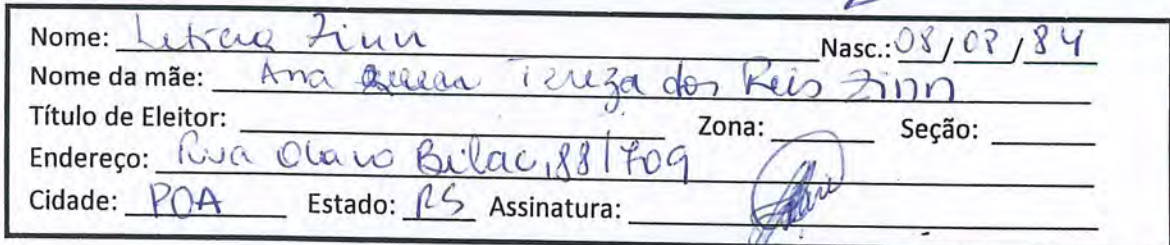 Nome: Leticia Zinn Nasc.: 08/08/84
Nome da mãe: Ana Tereza dos Reis Zinn
Título de Eleitor: Zona: Seção:
Endereço: Rua Olavo Bilac, 88/709
Cidade: POA Estado: RS Assinatura: